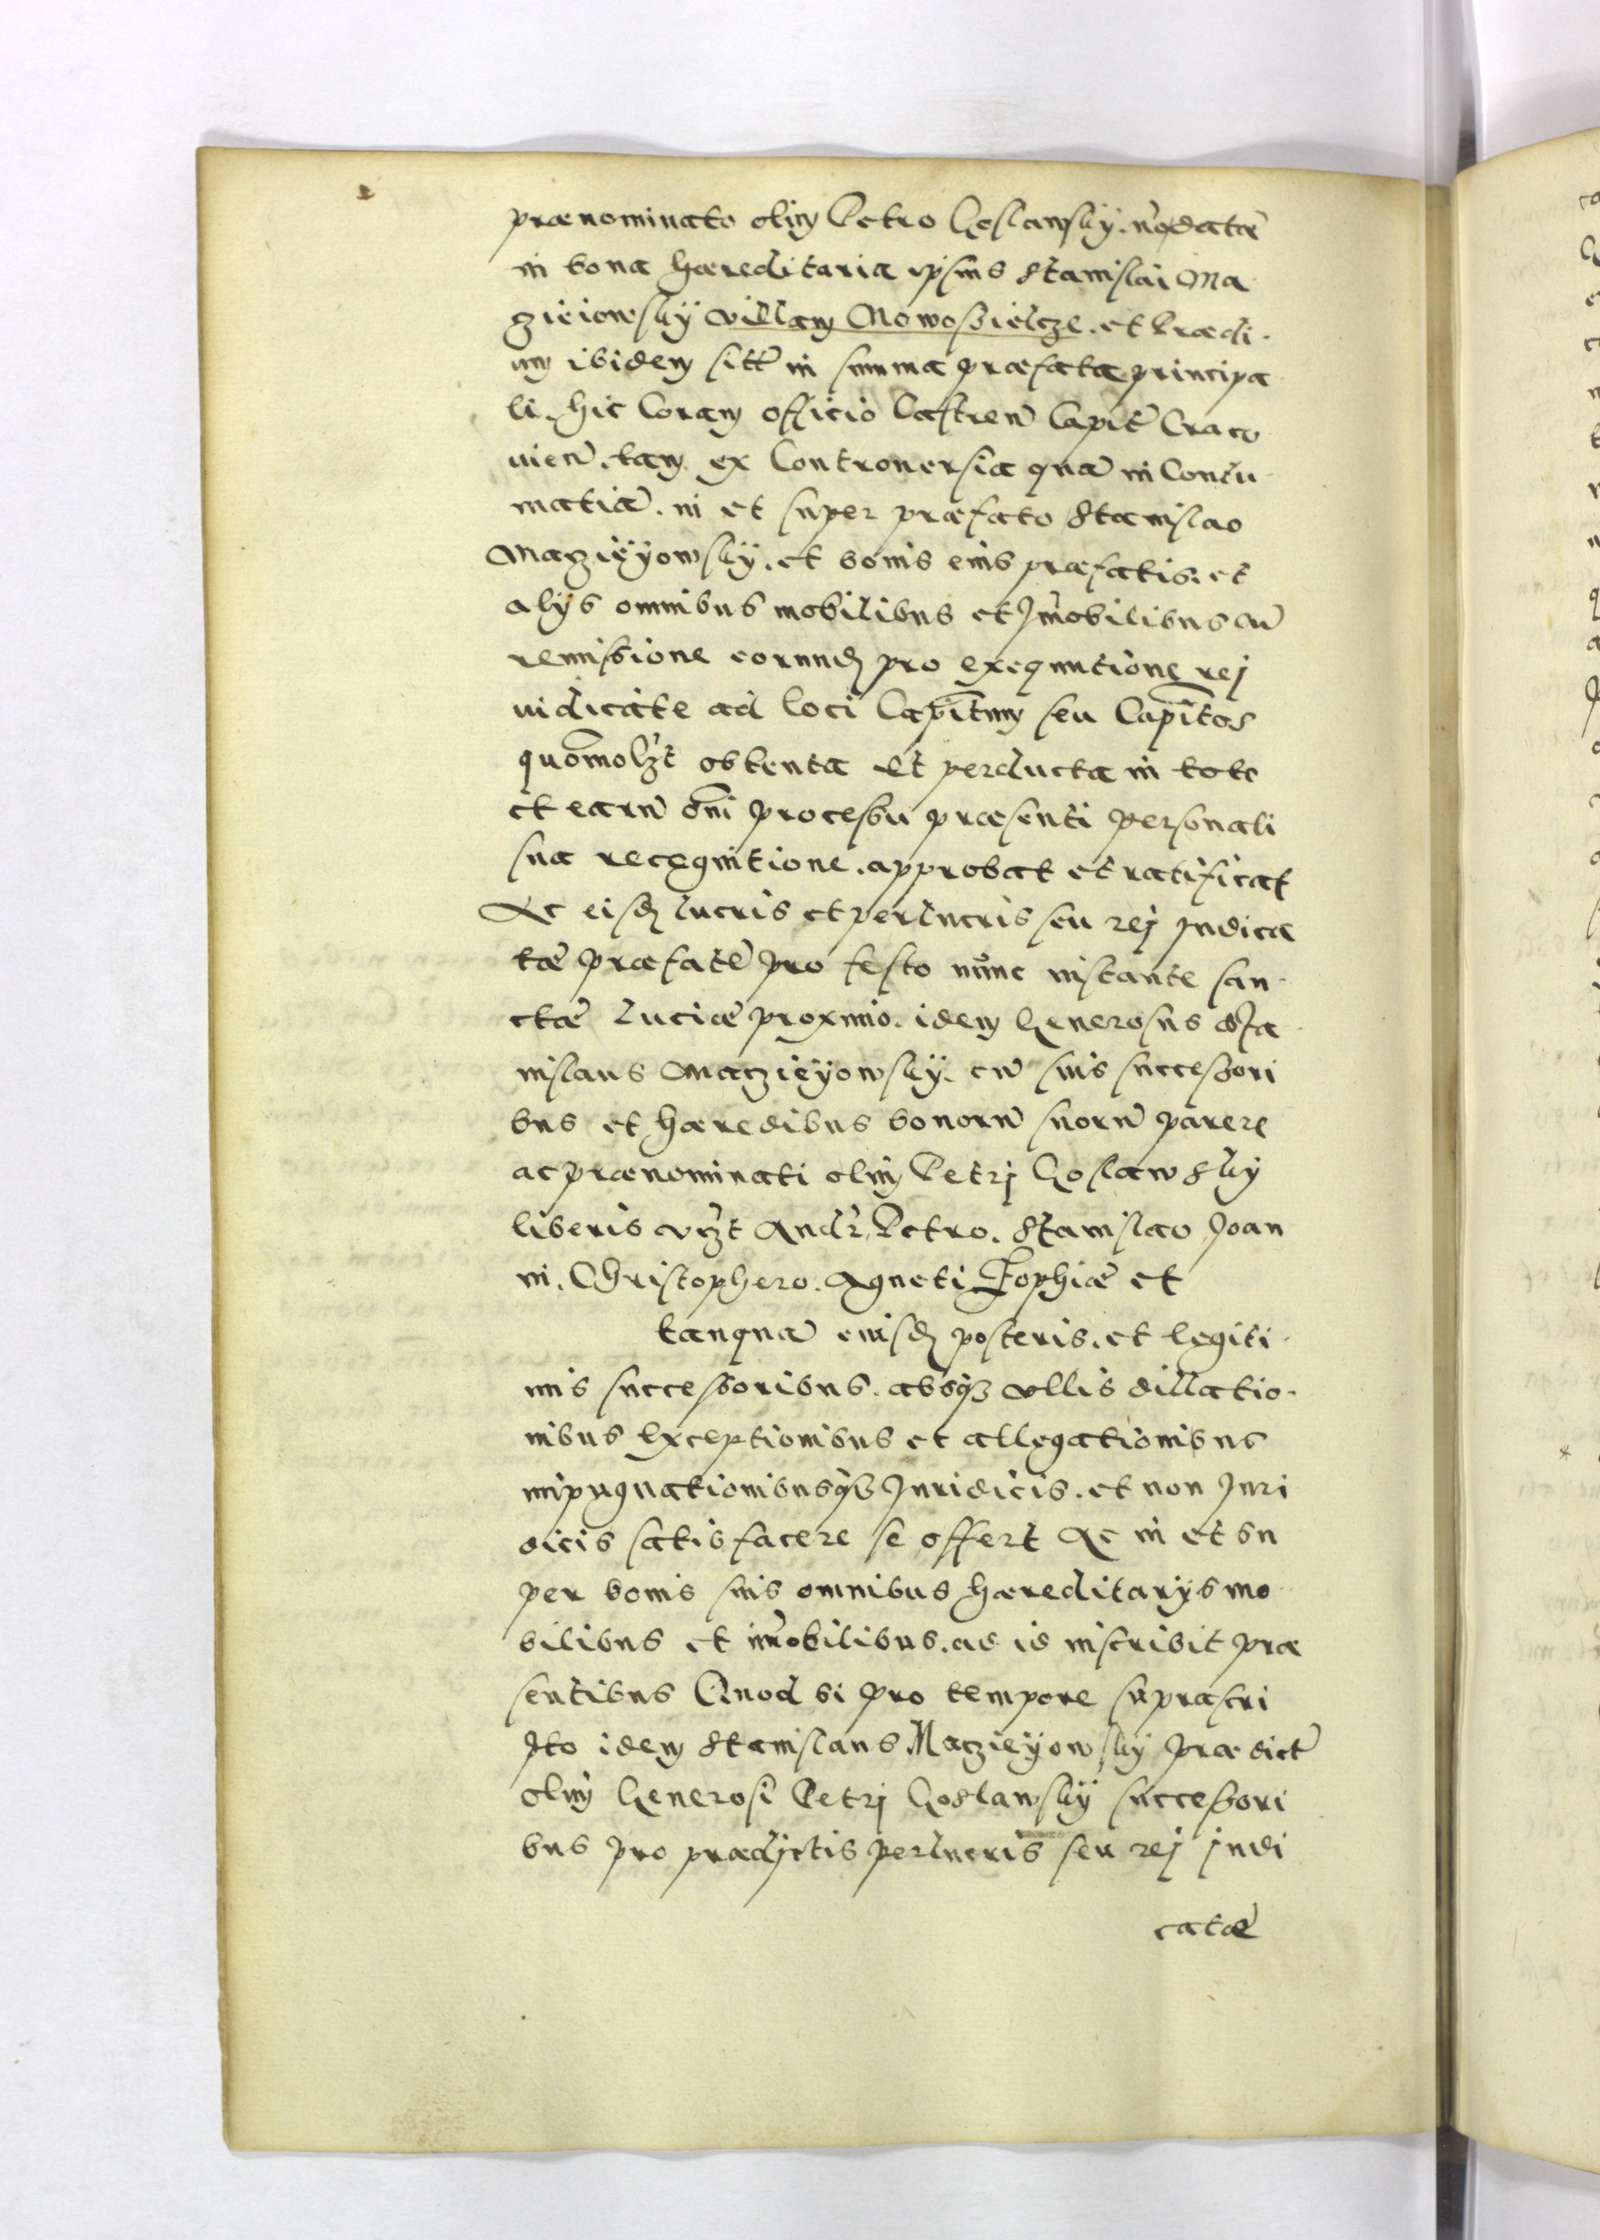 prænominato olim Petro Goslawsky. in datæ
in bona hæreditaria ipsius Stanislai Ma
zieiowsky villam Nowosielcze. et Prædi
um ibidem sitt in summa præfata principa
li. hic Coram officio Castren Capit Craco
vien. tam ex Controversia qua in Contu
matia. in et super præfato Stanislao
Macziëyowsky. et bonis eius præfatis. et
alÿs omnibus mobilibus et Jmobilibus cu
remissione eorund pro exequutione rej
iudicate ad loci Capitum seu Capitos
quomolzt obtenta et perducta in toto
et earu omi processu præsenti personali
sua recognitione. approbat et ratificat
Ac eisd lucris et perlucris seu rej Judica
tæ præfate pro festo nunc instante san
ctæ Luciæ proximo. idem Generosus Sta
nislaus Maczieÿowsky. cu suis successori
bus et hæredibus bonoru suoru parere
ac prænominati olim Petrj Goslawsky
liberis vzt Andr, Petro. Stanislao Joan
ni. Christophero. Agneti Zophiæ et
tanqua eiusd posteris. et legiti
mis successoribus. absqz ullis dillatio
nibus exceptionibus et allegationibus
impugnationibusqz Juridicis. et non Juri
dicis satisfacere se offert Ac in et su
per bonis suis omnibus hæreditarÿs mo
bilibus et imobilibus. ad id inscribit præ
sentibus Quod si pro tempore suprascri
pto idem Stanislaus Maczieÿowsky prædict
olim Generosi Petrj Goslawskÿ successori
bus pro prædictis perlucris seu rej judi
catæ